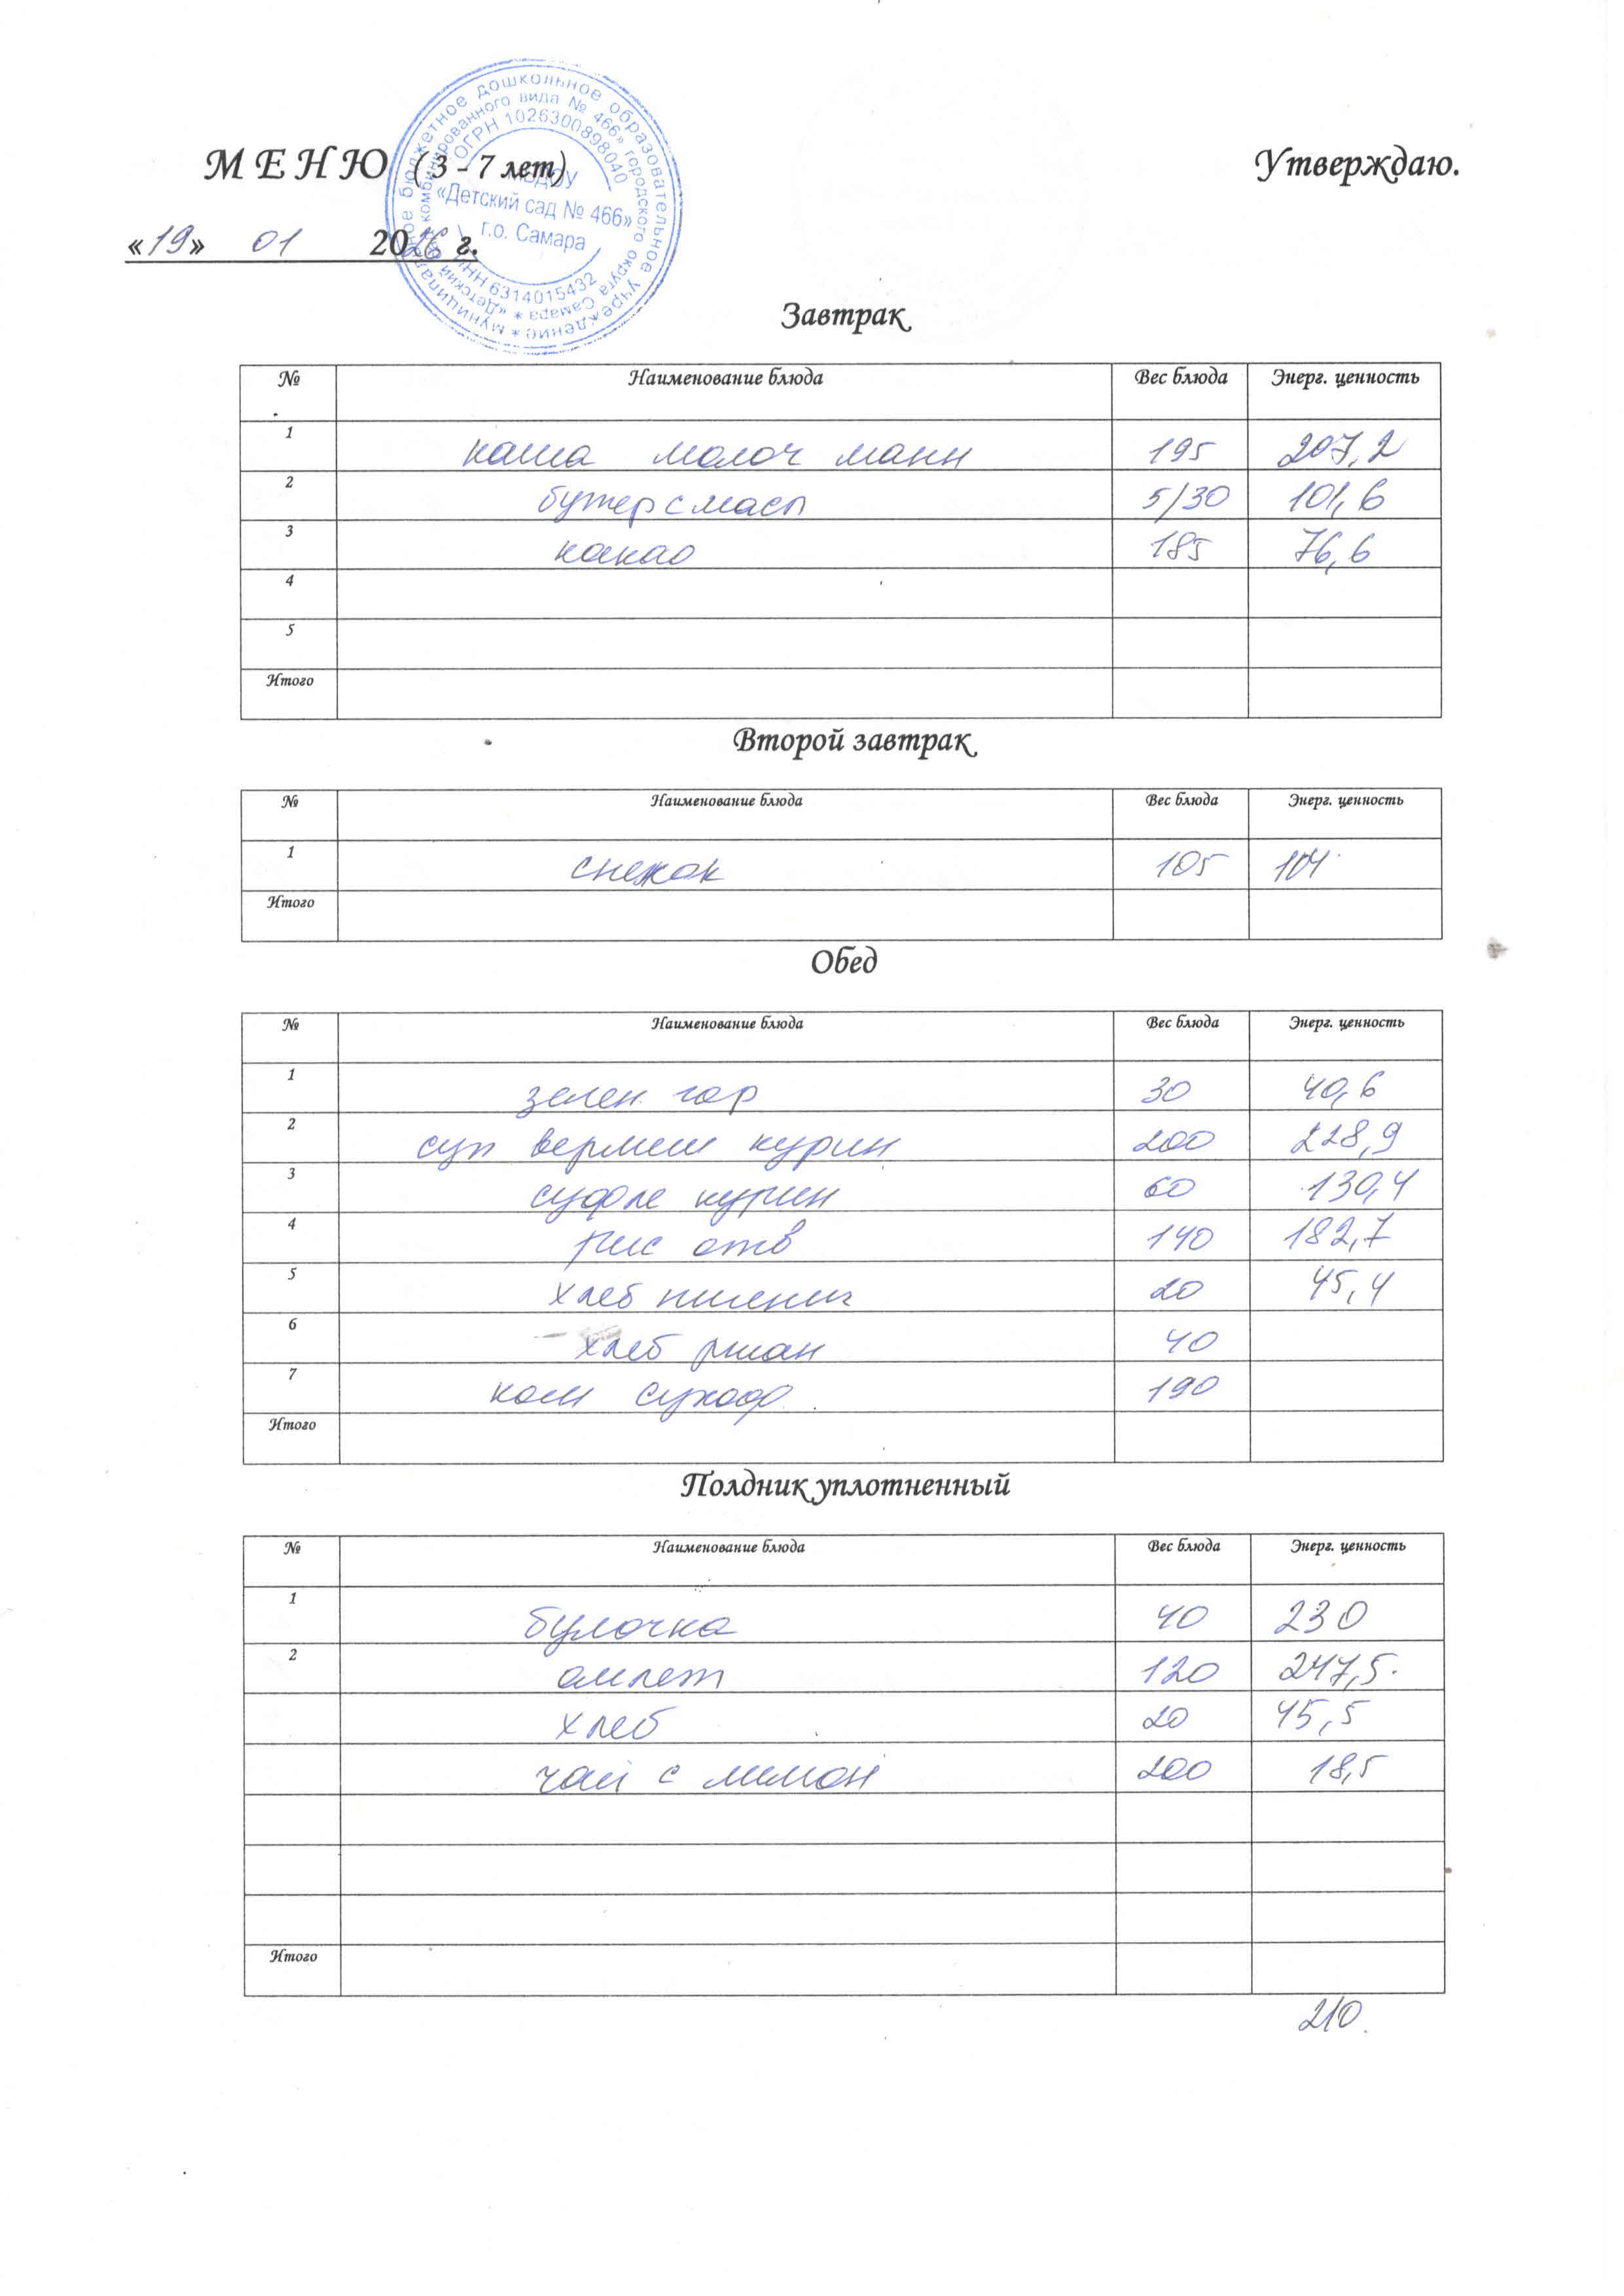 муниципальное бюджетное дошкольное образовательное учреждение *
«Детский сад комбинированного вида № 466» городского округа Самара *
ОГРН 1026300898040
МБДОУ
«Детский сад № 466»
г.о. Самара
ИНН 6314015432
МЕНЮ (3 - 7 лет) Утверждаю.
«19» 01 2026 г.
Завтрак
№ Наименование блюда Вес блюда Энерг. ценность
1 каша молоч манн 195 207,2
2 бутер с масл 5/30 101,6
3 какао 185 76,6
4
5
Итого
Второй завтрак
№ Наименование блюда Вес блюда Энерг. ценность
1 снежок 105 104
Итого
Обед
№ Наименование блюда Вес блюда Энерг. ценность
1 зелен гор 30 40,6
2 суп вермиш курин 200 228,9
3 суфле курин 60 130,4
4 рис отв 140 182,7
5 хлеб пшенич 20 45,4
6 хлеб ржан 40
7 ком сухоф 190
Итого
Полдник уплотненный
№ Наименование блюда Вес блюда Энерг. ценность
1 булочка 40 230
2 омлет 120 247,5
хлеб 20 45,5
чай с лимон 200 18,5
Итого
210